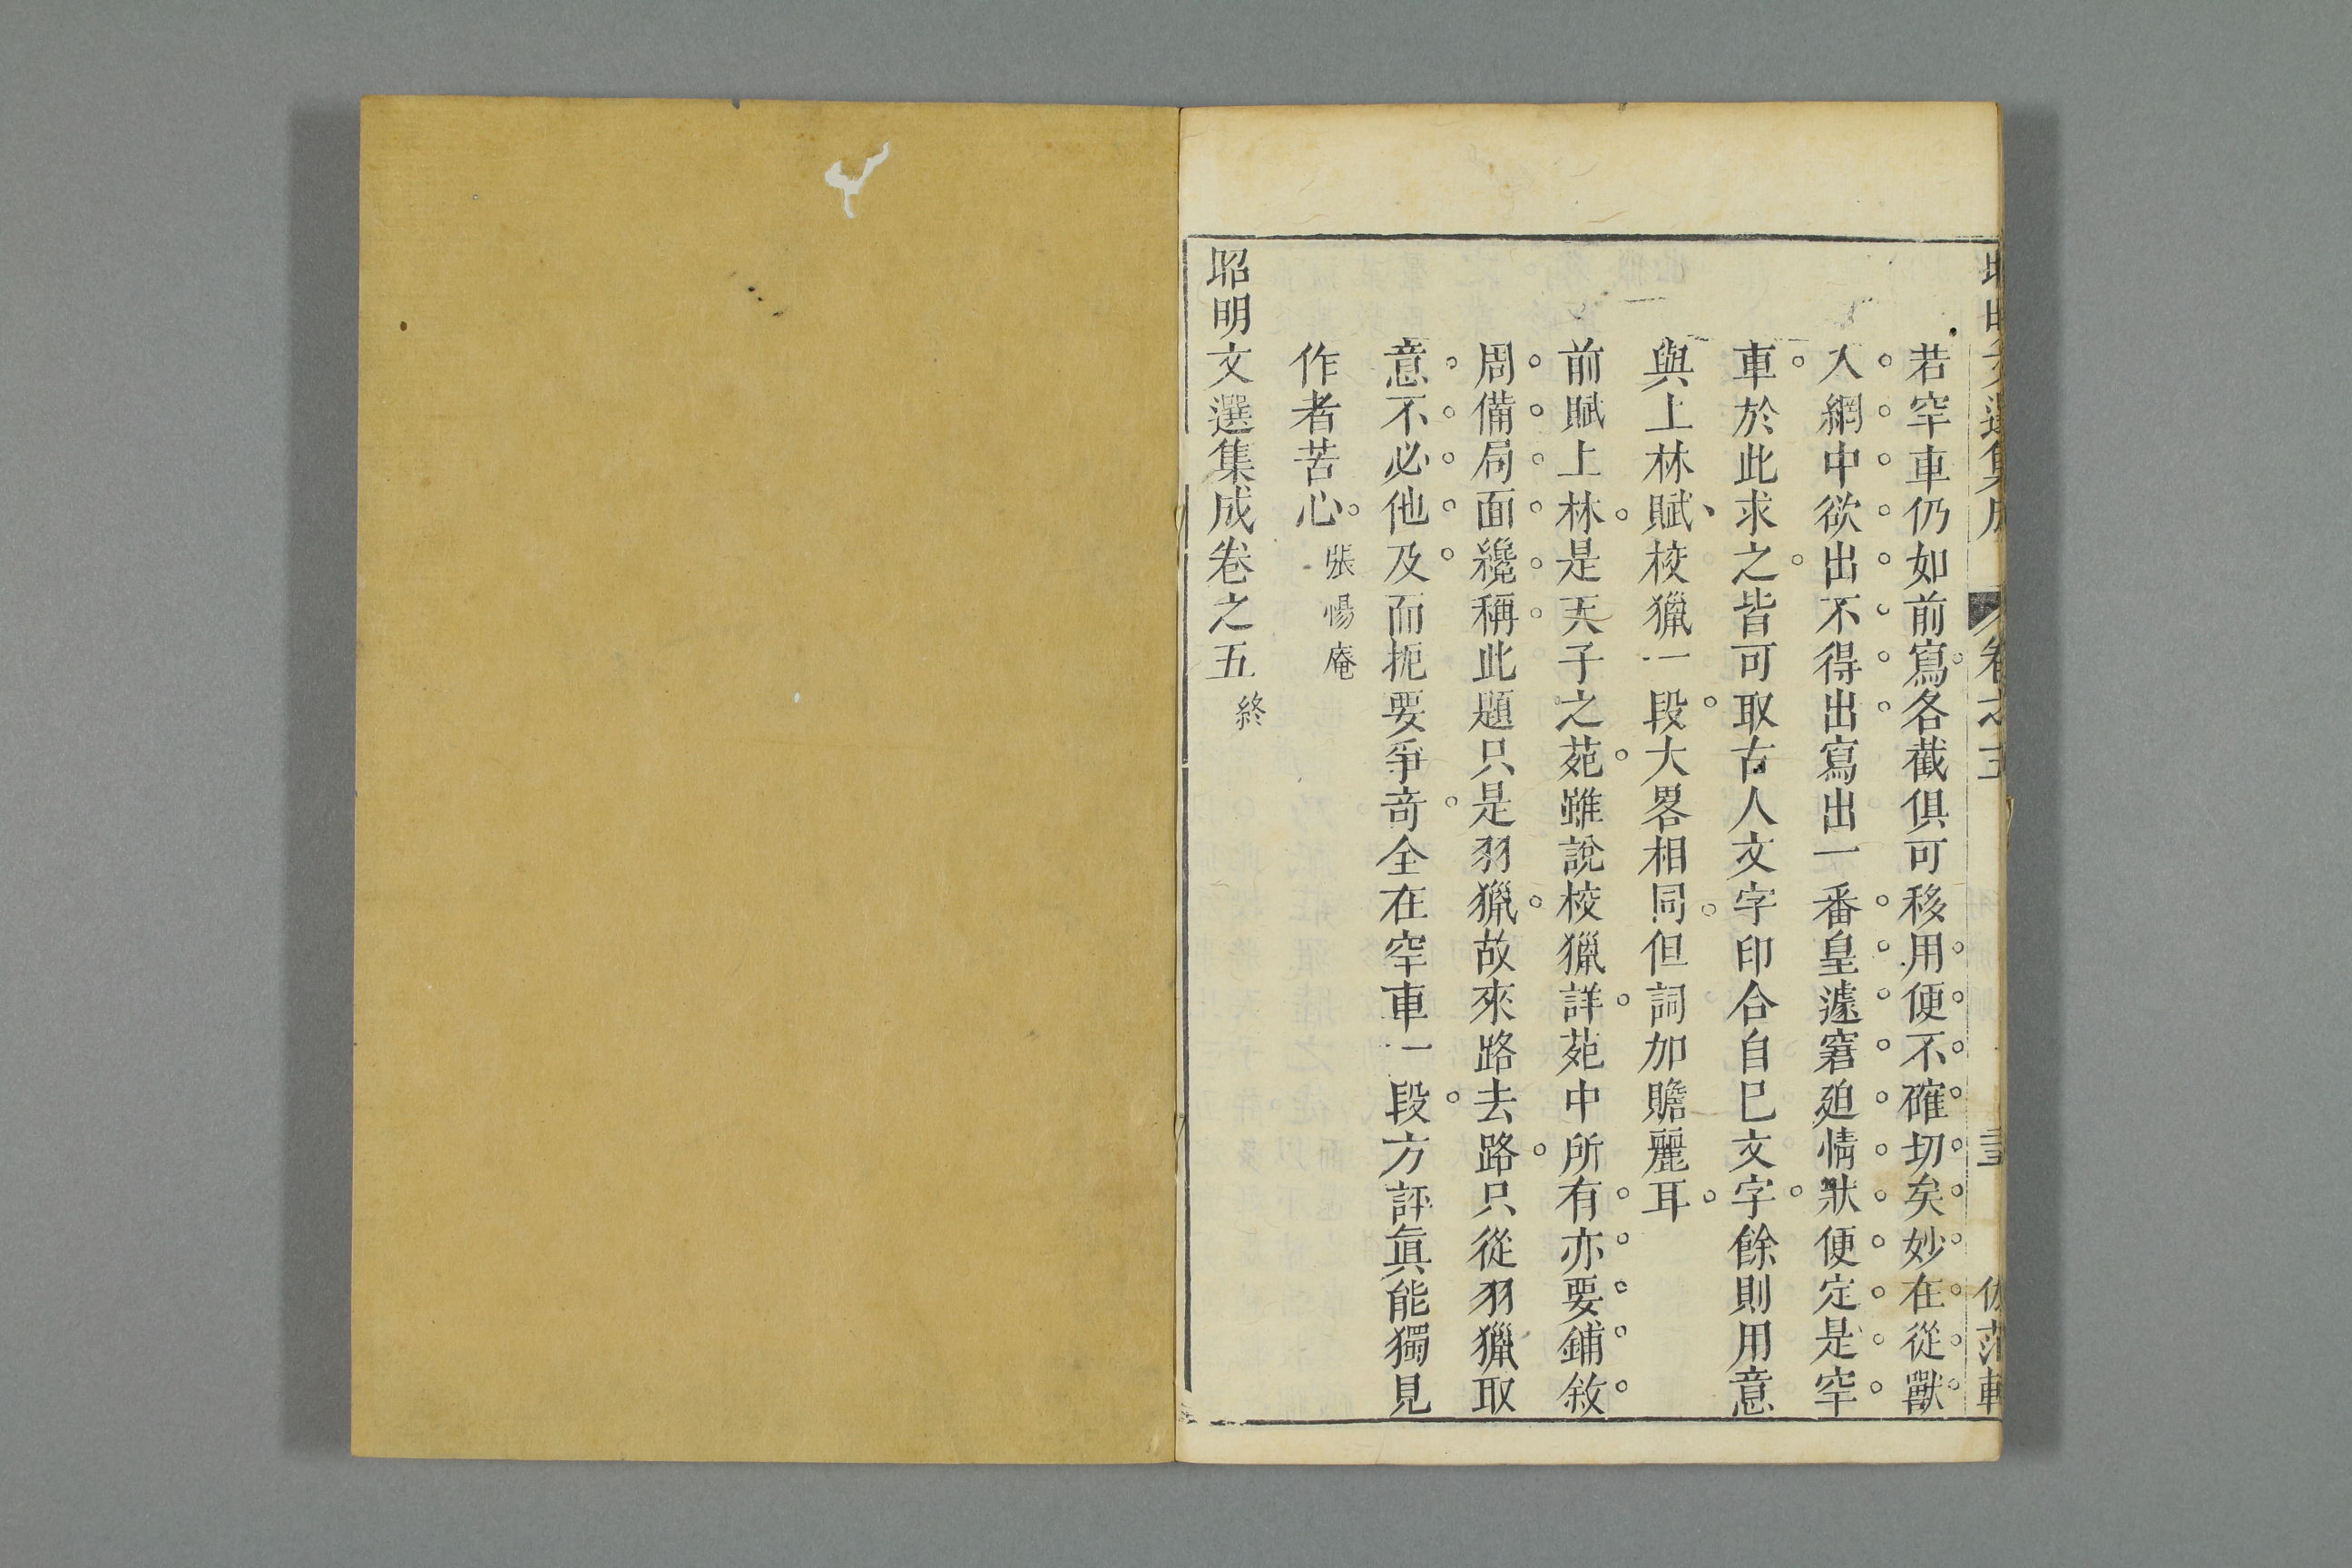 昭明文選集成 卷之五
若罕車仍如前寫各截俱可移用便不確切矣妙在從獸
入網中欲出不得出寫出一番皇遽窘廹情狀便定是罕
車於此求之皆可取古人文字印合自巳文字餘則用意
與上林賦校獵一段大畧相同但詞加贍麗耳
前賦上林是天子之苑雖說校獵詳苑中所有亦要鋪敘
周備局面纔稱此題只是羽獵故來路去路只從羽獵取
意不必他及而扼要爭竒全在罕車一段方評眞能獨見
作者苦心 張惕庵
昭明文選集成卷之五 終